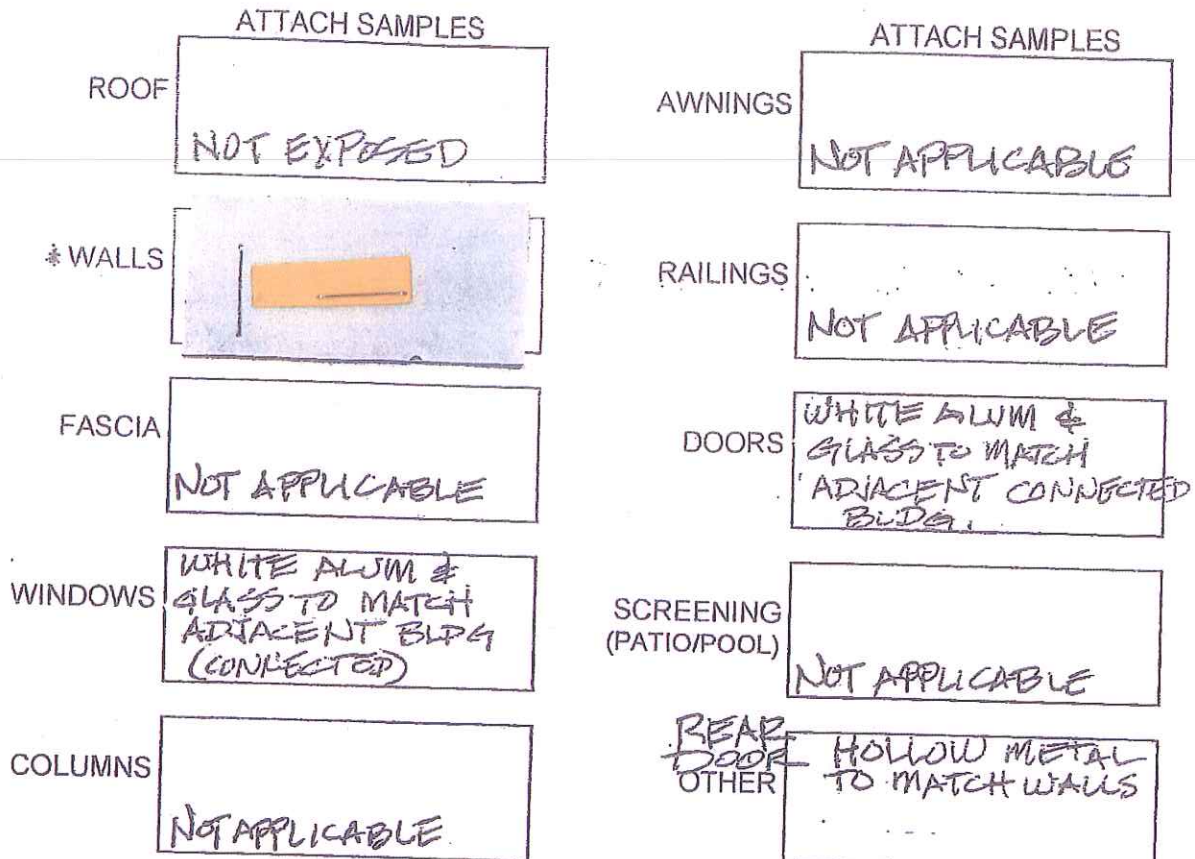 ATTACH SAMPLES
ROOF
NOT EXPOSED
* WALLS
FASCIA
NOT APPLICABLE
WINDOWS
WHITE ALUM &
GLASS TO MATCH
ADJACENT BLDG
(CONNECTED)
COLUMNS
NOT APPLICABLE
ATTACH SAMPLES
AWNINGS
NOT APPLICABLE
RAILINGS
NOT APPLICABLE
DOORS
WHITE ALUM &
GLASS TO MATCH
ADJACENT CONNECTED
BLDG.
SCREENING
(PATIO/POOL)
NOT APPLICABLE
REAR
DOOR
OTHER
HOLLOW METAL
TO MATCH WALLS